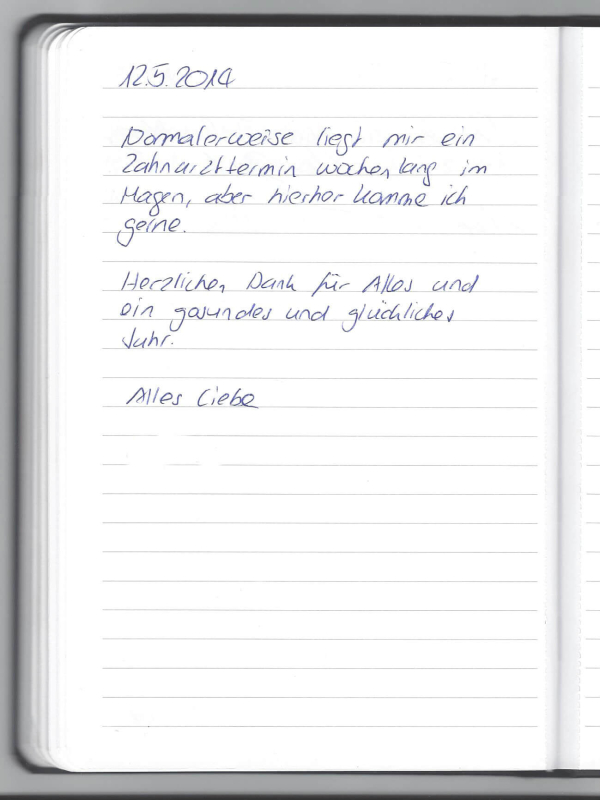 12.5.2014
Normalerweise liegt mir ein
Zahnarzttermin wochenlang im
Magen, aber hierher komme ich
gerne.
Herzlichen Dank für Alles und
ein gesundes und glückliches
Jahr.
Alles Liebe